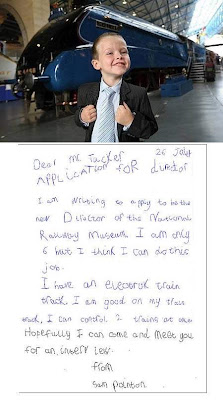 26 July
Dear Mr Tucker
APPLICATION FOR Director
I am writing to apply to be the
new Director of the National
Railway Museum I am only
6 but I think I can do this
job.
I have an electronic train
track. I am good on my train
track. I can control 2 trains at once
Hopefully I can come and meet you
for an interview.
from
Sam Pointon